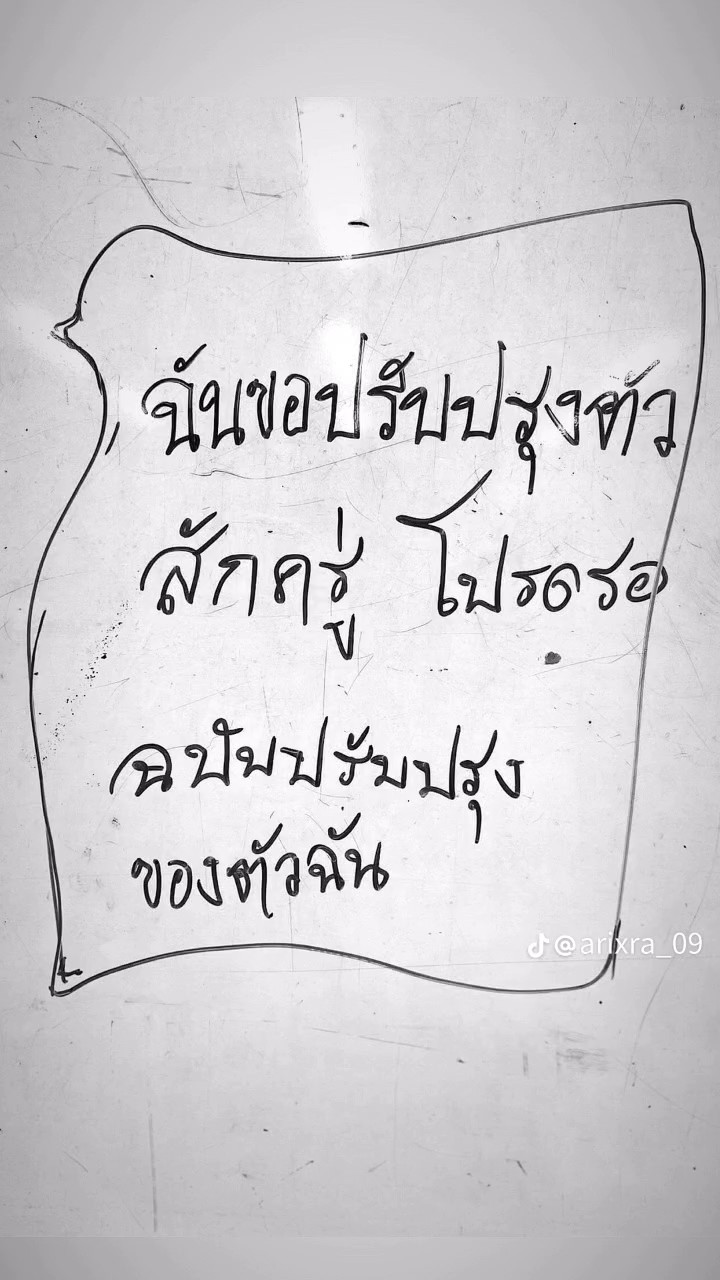 ฉันขอปรับปรุงตัว
สักครู่ โปรดรอ
ฉบับปรับปรุง
ของตัวฉัน
@arixra_09